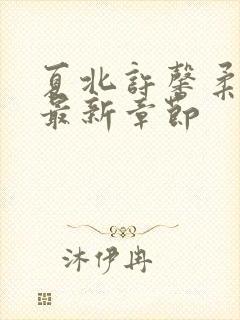 夏北許馨柔
最新章節
沐伊冉